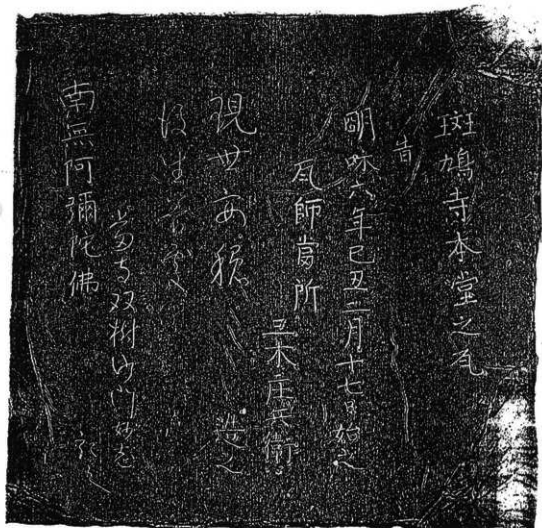 斑鳩寺本堂之瓦
昔
明咊六年己丑二月十七日始之
瓦師當所
木庄兵衛
造之
現世安穏
後生善處
當寺双樹沙門
南無阿彌陀佛